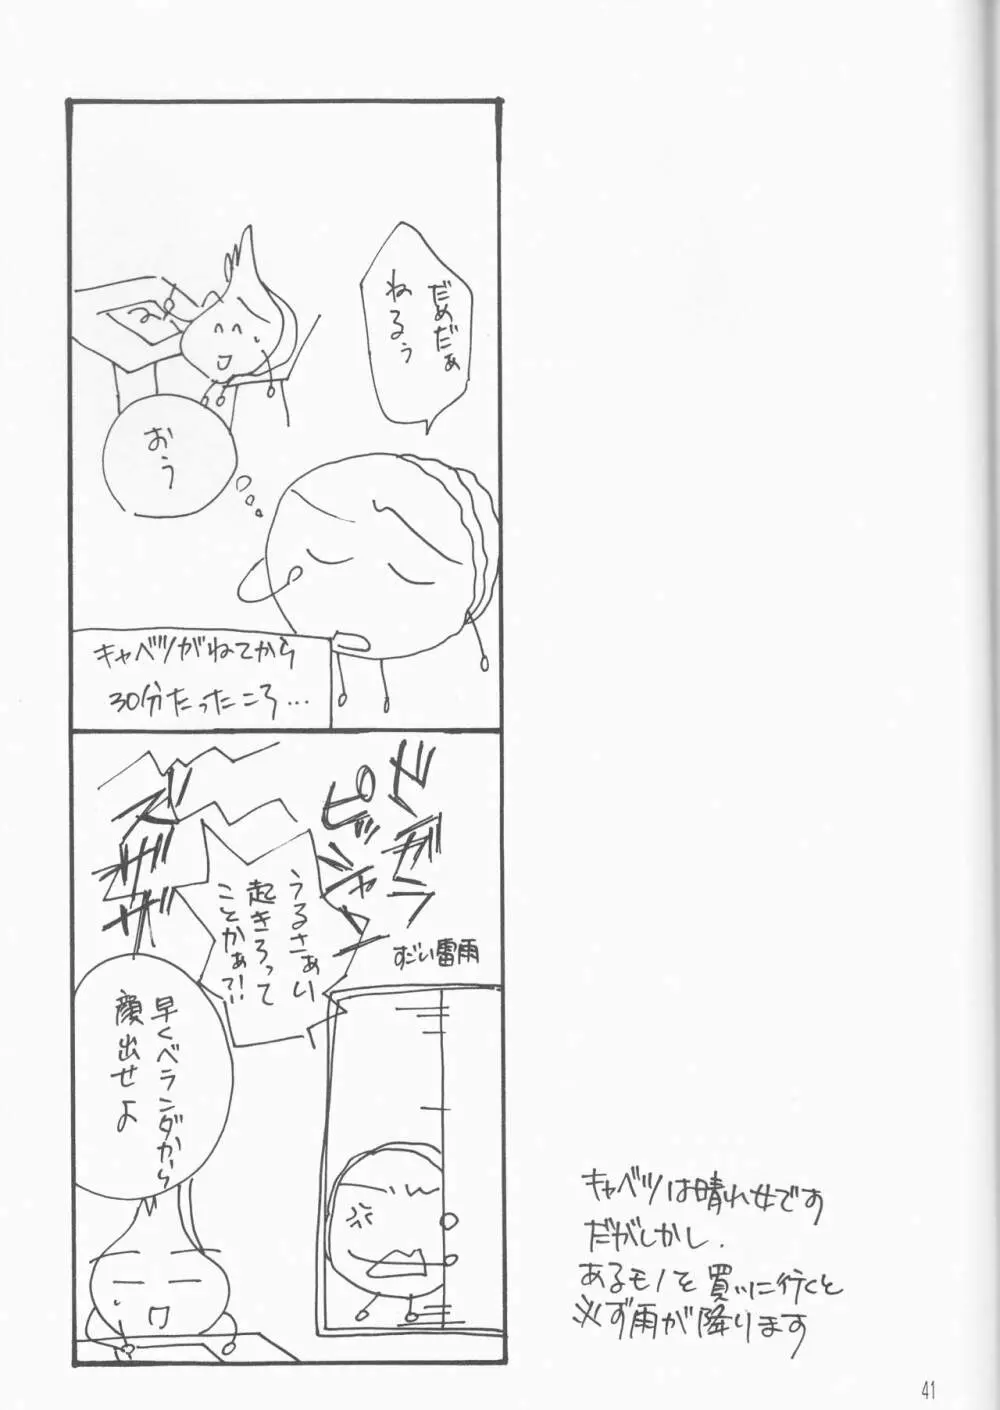 だめだぁ
ねるぅ
おう
キャベツがねてから
30分たったころ…
ドガラ
ピッシャ
ズザザ
すごい雷雨
うるさぁい
起きろって
ことかぁ?!
早くベランダから
顔出せよ
キャベツは晴れ女です
だがしかし、
あるモノを買いに行くと
必ず雨が降ります
41